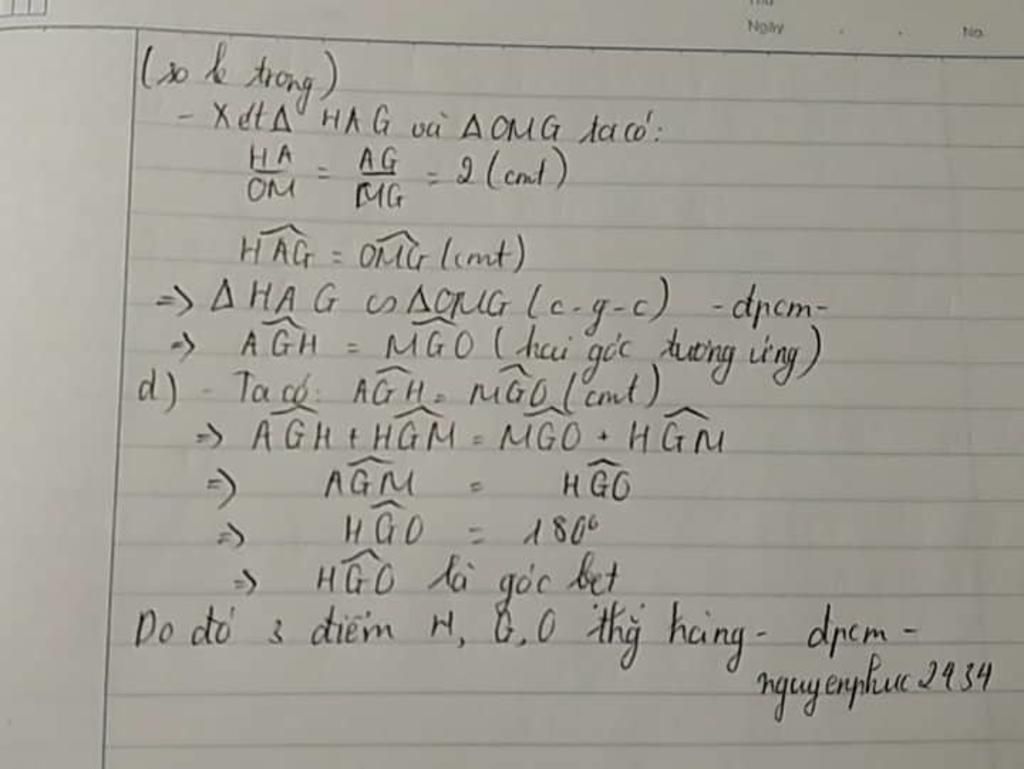 Thu
Ngày No.
(so le trong)
- Xét Δ HAG và Δ OMG ta có:
HA/OM = AG/MG = 2 (cmt)
\widehat{HAG} = \widehat{OMG} (cmt)
=> Δ HAG ∽ Δ OMG (c-g-c) -dpcm-
=> \widehat{AGH} = \widehat{MGO} (hai góc tương ứng)
d) - Ta có: \widehat{AGH} = \widehat{MGO} (cmt)
=> \widehat{AGH} + \widehat{HGM} = \widehat{MGO} + \widehat{HGM}
=> \widehat{AGM} = \widehat{HGO}
=> \widehat{HGO} = 180°
=> \widehat{HGO} là góc bẹt
Do đó 3 điểm H, G, O thẳg hàng - dpcm -
nguyenphuc2434